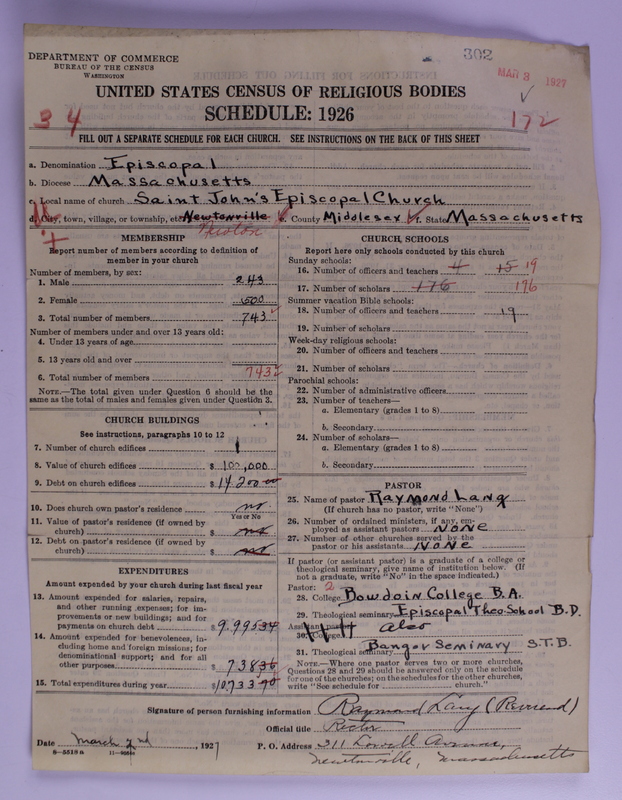 302
DEPARTMENT OF COMMERCE
BUREAU OF THE CENSUS
WASHINGTON
MAR 3 1927
UNITED STATES CENSUS OF RELIGIOUS BODIES
SCHEDULE: 1926
3 4
172
FILL OUT A SEPARATE SCHEDULE FOR EACH CHURCH. SEE INSTRUCTIONS ON THE BACK OF THIS SHEET
a. Denomination Episcopal
b. Diocese Massachusetts
c. Local name of church Saint John's Episcopal Church
d. City, town, village, or township, etc. Newtonville e. County Middlesex f. State Massachusetts
Newton
MEMBERSHIP
Report number of members according to definition of
member in your church
Number of members, by sex:
1. Male 243
2. Female 500
3. Total number of members 743
Number of members under and over 13 years old:
4. Under 13 years of age
5. 13 years old and over
6. Total number of members 743
NOTE.—The total given under Question 6 should be the
same as the total of males and females given under Question 3.
CHURCH BUILDINGS
See instructions, paragraphs 10 to 12
7. Number of church edifices 1
8. Value of church edifices $ 100,000
9. Debt on church edifices $ 14,200
10. Does church own pastor's residence no
Yes or No
11. Value of pastor's residence (if owned by
church) $
12. Debt on pastor's residence (if owned by
church) $
EXPENDITURES
Amount expended by your church during last fiscal year
13. Amount expended for salaries, repairs,
and other running expenses; for im-
provements or new buildings; and for
payments on church debt $ 9,99534
14. Amount expended for benevolences, in-
cluding home and foreign missions; for
denominational support; and for all
other purposes $ 73836
15. Total expenditures during year $ 10,73370
CHURCH SCHOOLS
Report here only schools conducted by this church
Sunday schools:
16. Number of officers and teachers 4 15 19
17. Number of scholars 176 196
Summer vacation Bible schools:
18. Number of officers and teachers 19
19. Number of scholars
Week-day religious schools:
20. Number of officers and teachers
21. Number of scholars
Parochial schools:
22. Number of administrative officers
23. Number of teachers—
a. Elementary (grades 1 to 8)
b. Secondary
24. Number of scholars—
a. Elementary (grades 1 to 8)
b. Secondary
PASTOR
25. Name of pastor Raymond Lang
(If church has no pastor, write "None")
26. Number of ordained ministers, if any, em-
ployed as assistant pastors NONE
27. Number of other churches served by the
pastor or his assistants NONE
If pastor (or assistant pastor) is a graduate of a college or
theological seminary, give name of institution below. (If
not a graduate, write "No" in the space indicated.)
Pastor: 2
28. College Bowdoin College B.A.
29. Theological seminary Episcopal Theo. School B.D.
Assistant pastor: also
30. College
31. Theological seminary Bangor Seminary S.T.B.
NOTE.—Where one pastor serves two or more churches,
Questions 28 and 29 should be answered only on the schedule
for one of the churches; on the schedules for the other churches,
write "See schedule for church."
Signature of person furnishing information Raymond Lang (Reverend)
Official title Rector
Date March 2nd, 1927 P. O. Address 311 Lowell Avenue,
Newtonville, Massachusetts
8—5518 a